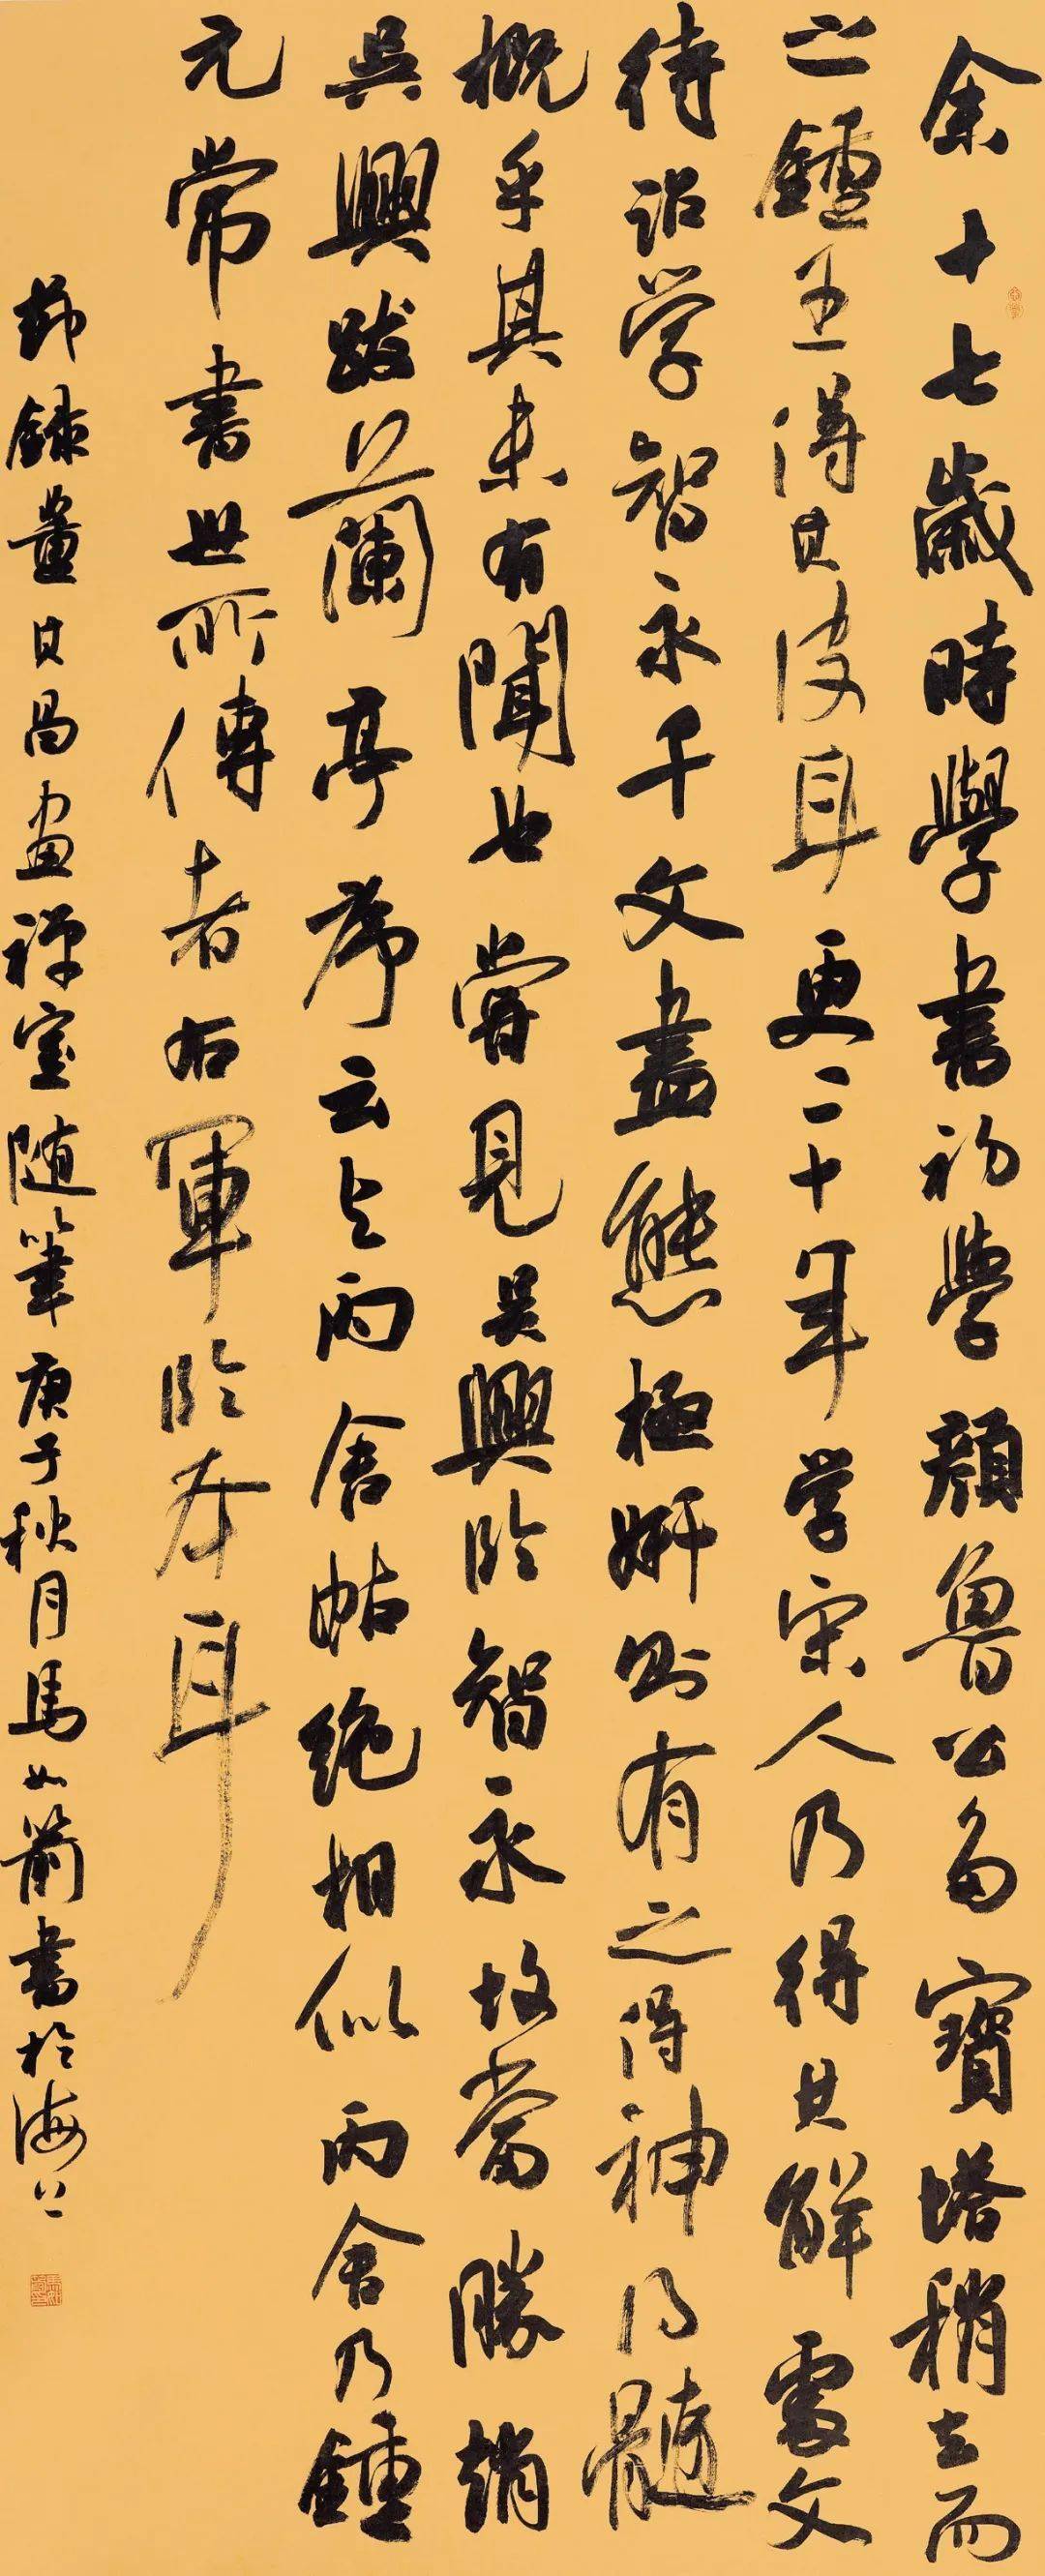 余十七歲時學書初學顏魯公多寶塔稍去而
之鍾王得其皮耳更二十年学宋人乃得其解處文
待詔学智永千文盡態極妍則有之得神得髓
概乎其未有聞也嘗見吳興臨智永故當勝趙
吳興跋蘭亭序云與丙舍帖絶相似丙舍乃鍾
元常書世所傳者右軍臨本耳
節録董其昌畫禅室随筆庚子秋月馬如蘭書於海上